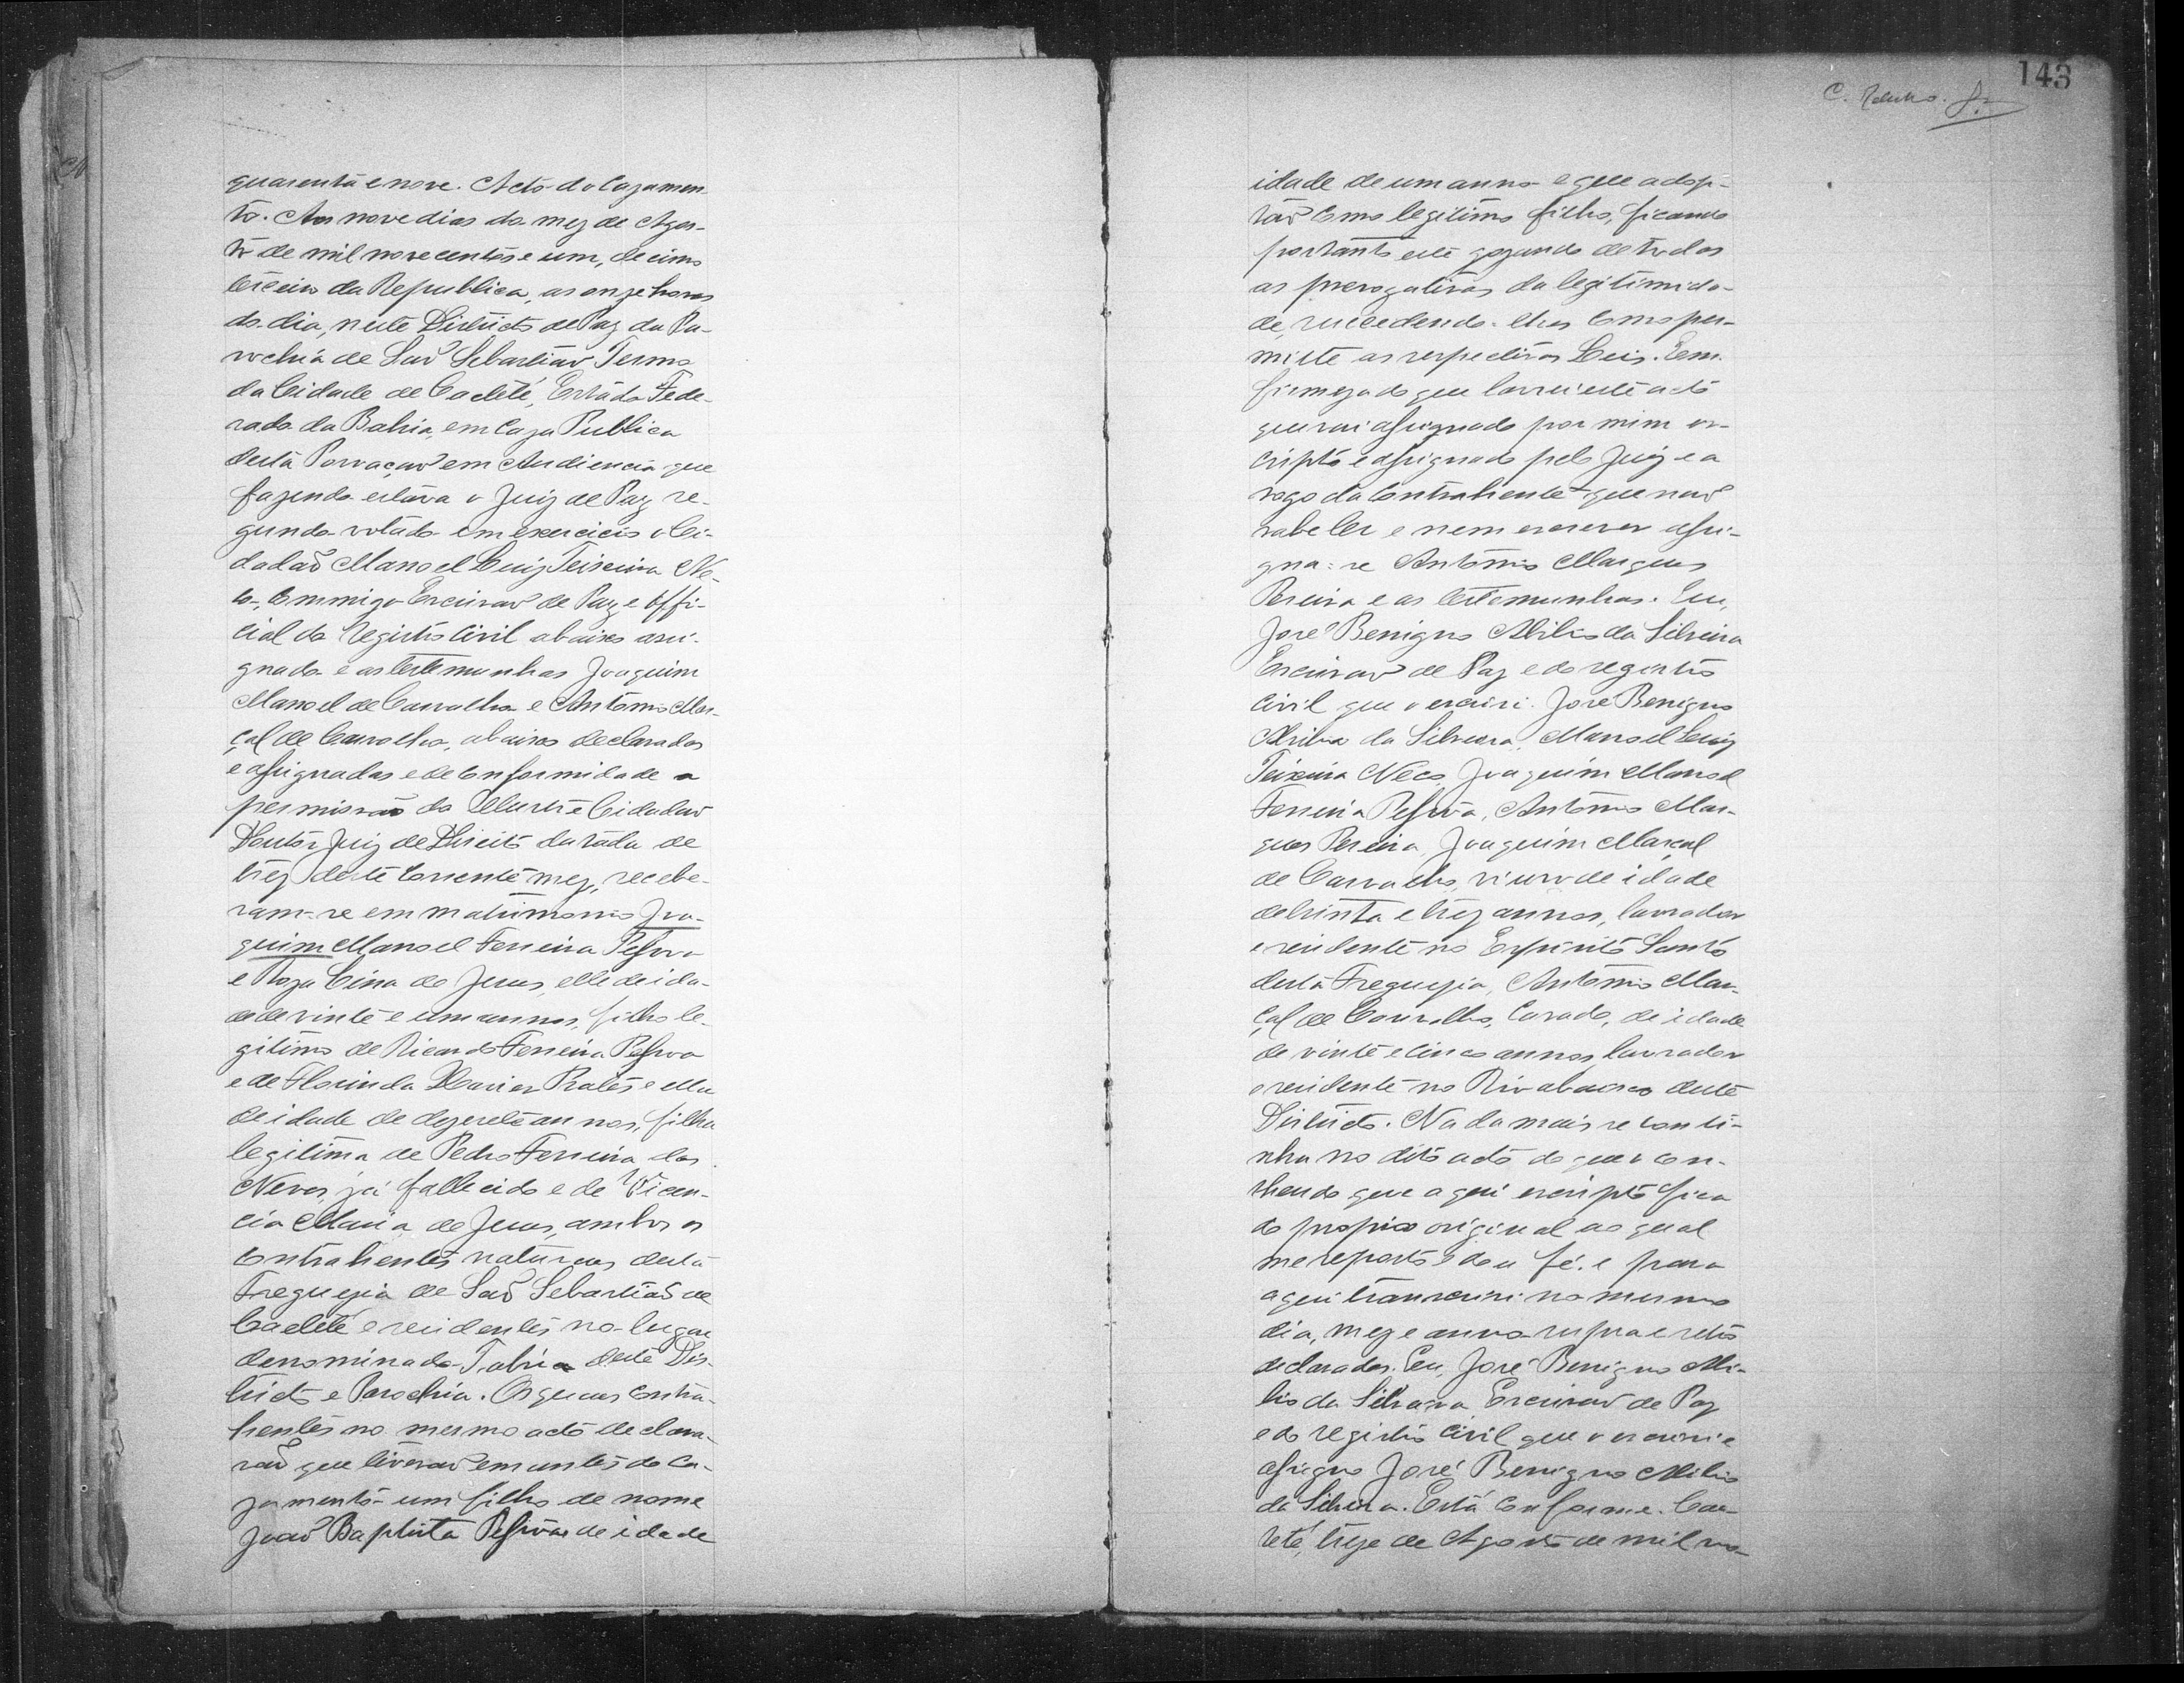 quarenta e nove. Acto do Cazamen-
to. Aos nove dias do mez de Agos-
to de mil novecentos e um, decimo
terceiro da Republica, as onze horas
do dia, neste Districto de Paz da Pa-
rochia de São Sebastião Termo
da Cidade de Caeteté, Estado Fede-
rado da Bahia, em Caza Publica
desta Povoação em Audiencia que
fazendo estava o Juiz de Paz se-
gundo votado em exercicio o Ci-
dadaõ Manoel Luiz Teixeira Ne-
co, Commigo Escrivaõ de Paz e Offi-
cial do registro Civil abaixo assi-
gnado e as testemunhas Joaquim
Manoel de Carvalho e Antonio Mar-
çal de Carvalho, abaixo declarados
e assignados e de Conformidade a
permissaõ do Illustre Cidadaõ
Doutor Juiz de Direito datada de
trez deste Corrente mez, recebe-
ram-se em matrimonio Joa-
quim Manoel Ferreira Pessoa
e Roza Cina de Jesus, elle de ida-
de de vinte e um annos, filho le-
gitimo de Ricardo Ferreira Pessoa
e de Florinda Xavier Prates e ella
de idade de dezesete annos, filha
legitima de Pedro Ferreira das
Neves, já fallecido e de Vicen-
cia Maria de Jesus, ambos os
Contrahentes naturaes desta
Freguezia de Saõ Sebastiaõ de
Caeteté e residentes no lugar
denominado deste Dis-
tricto e Parochia. Os quaes Contra-
hentes no mesmo acto declara-
raõ que tiveraõ em antes do Ca-
zamento um filho de nome
Joaõ Baptista Pessoa de idade
143
C.
idade de um anno e que adop-
taõ Como legitimo filho, ficando
portanto este gozando de todas
as prerogativas da legitimida-
de, succedendo-lhes Como per-
mitte as respectivas Leis. E em
firmeza do que lavrei este acto
que vai assignado por mim es-
cripto e assignado pelo Juiz e a
rogo da Contrahente que naõ
sabe ler e nem escrever assi-
gna-se Antonio Marques
Pereira e as testemunhas. Eu,
José Benigno Abilio da Silveira
Escrivaõ de Paz e do registro
Civil que o escrivi. José Benigno
Abilio da Silveira, Manoel Luiz
Teixeira Neco, Joaquim Manoel
Ferreira Pessoa, Antonio Mar-
ques Pereira, Joaquim Marçal
de Carvalho, viuvo de idade
de trinta e trez annos, lavrador
e residente no Espirito Santo
desta Freguezia, Antonio Mar-
çal de Carvalho, Casado, de idade
de vinte e cinco annos, lavrador
e residente no Rio abaixo deste
Districto. Nada mais se conti-
nha no dito acto do que o con-
theudo que aqui escripto fica
do proprio original ao qual
me reporto e dou fé. e para
aqui transcrivi no mesmo
dia, mez e anno supra e retro
declarados. Eu, José Benigno Abi-
lio da Silveira Escrivaõ de Paz
e do registro Civil que o escrivi e
assigno José Benigno Abilio
da Silveira. Está Conforme. Cae-
teté, treze de Agosto de mil no-